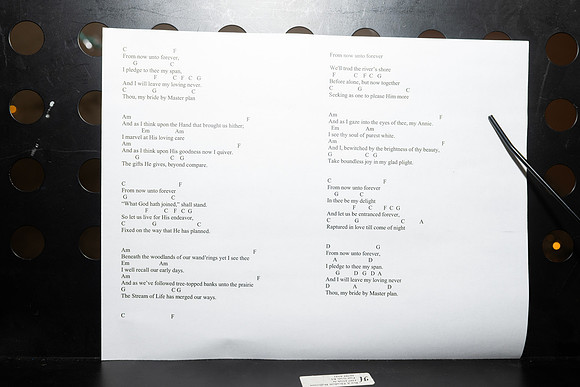 C F
From now unto forever,
G C
I pledge to thee my span,
F C F C G
And I will leave my loving never
C G C
Thou, my bride by Master plan
Am F
And as I think upon the Hand that brought us hither,
Em Am
I marvel at His loving care
Am F
And as I think upon His goodness now I quiver.
G C G C
The gifts He gives, beyond compare.
C F
From now unto forever
G C
"What God hath joined," shall stand.
F C F C G
So let us live for His endeavor,
C G C
Fixed on the way that He has planned.
Am F
Beneath the woodlands of our wand'rings yet I see thee
Em Am
I well recall our early days.
Am F
And as we've followed tree-topped banks unto the prairie
G C G
The Stream of Life has merged our ways.
C F
From now unto forever
We'll trod the river's shore
F C F C G
Before alone, but now together
C G C
Seeking as one to please Him more
Am F
And as I gaze into the eyes of thee, my Annie
Em Am
I see thy soul of purest white.
Am F
And I, bewitched by the brightness of thy beauty,
G C G
Take boundless joy in my glad plight.
C F
From now unto forever
G C
In thee be my delight
F C F C G
And let us be entranced forever,
C G C A
Raptured in love till come of night
D G
From now unto forever,
A D
I pledge to thee my span.
G D G D A
And I will leave my loving never
D A D
Thou, my bride by Master plan.
91